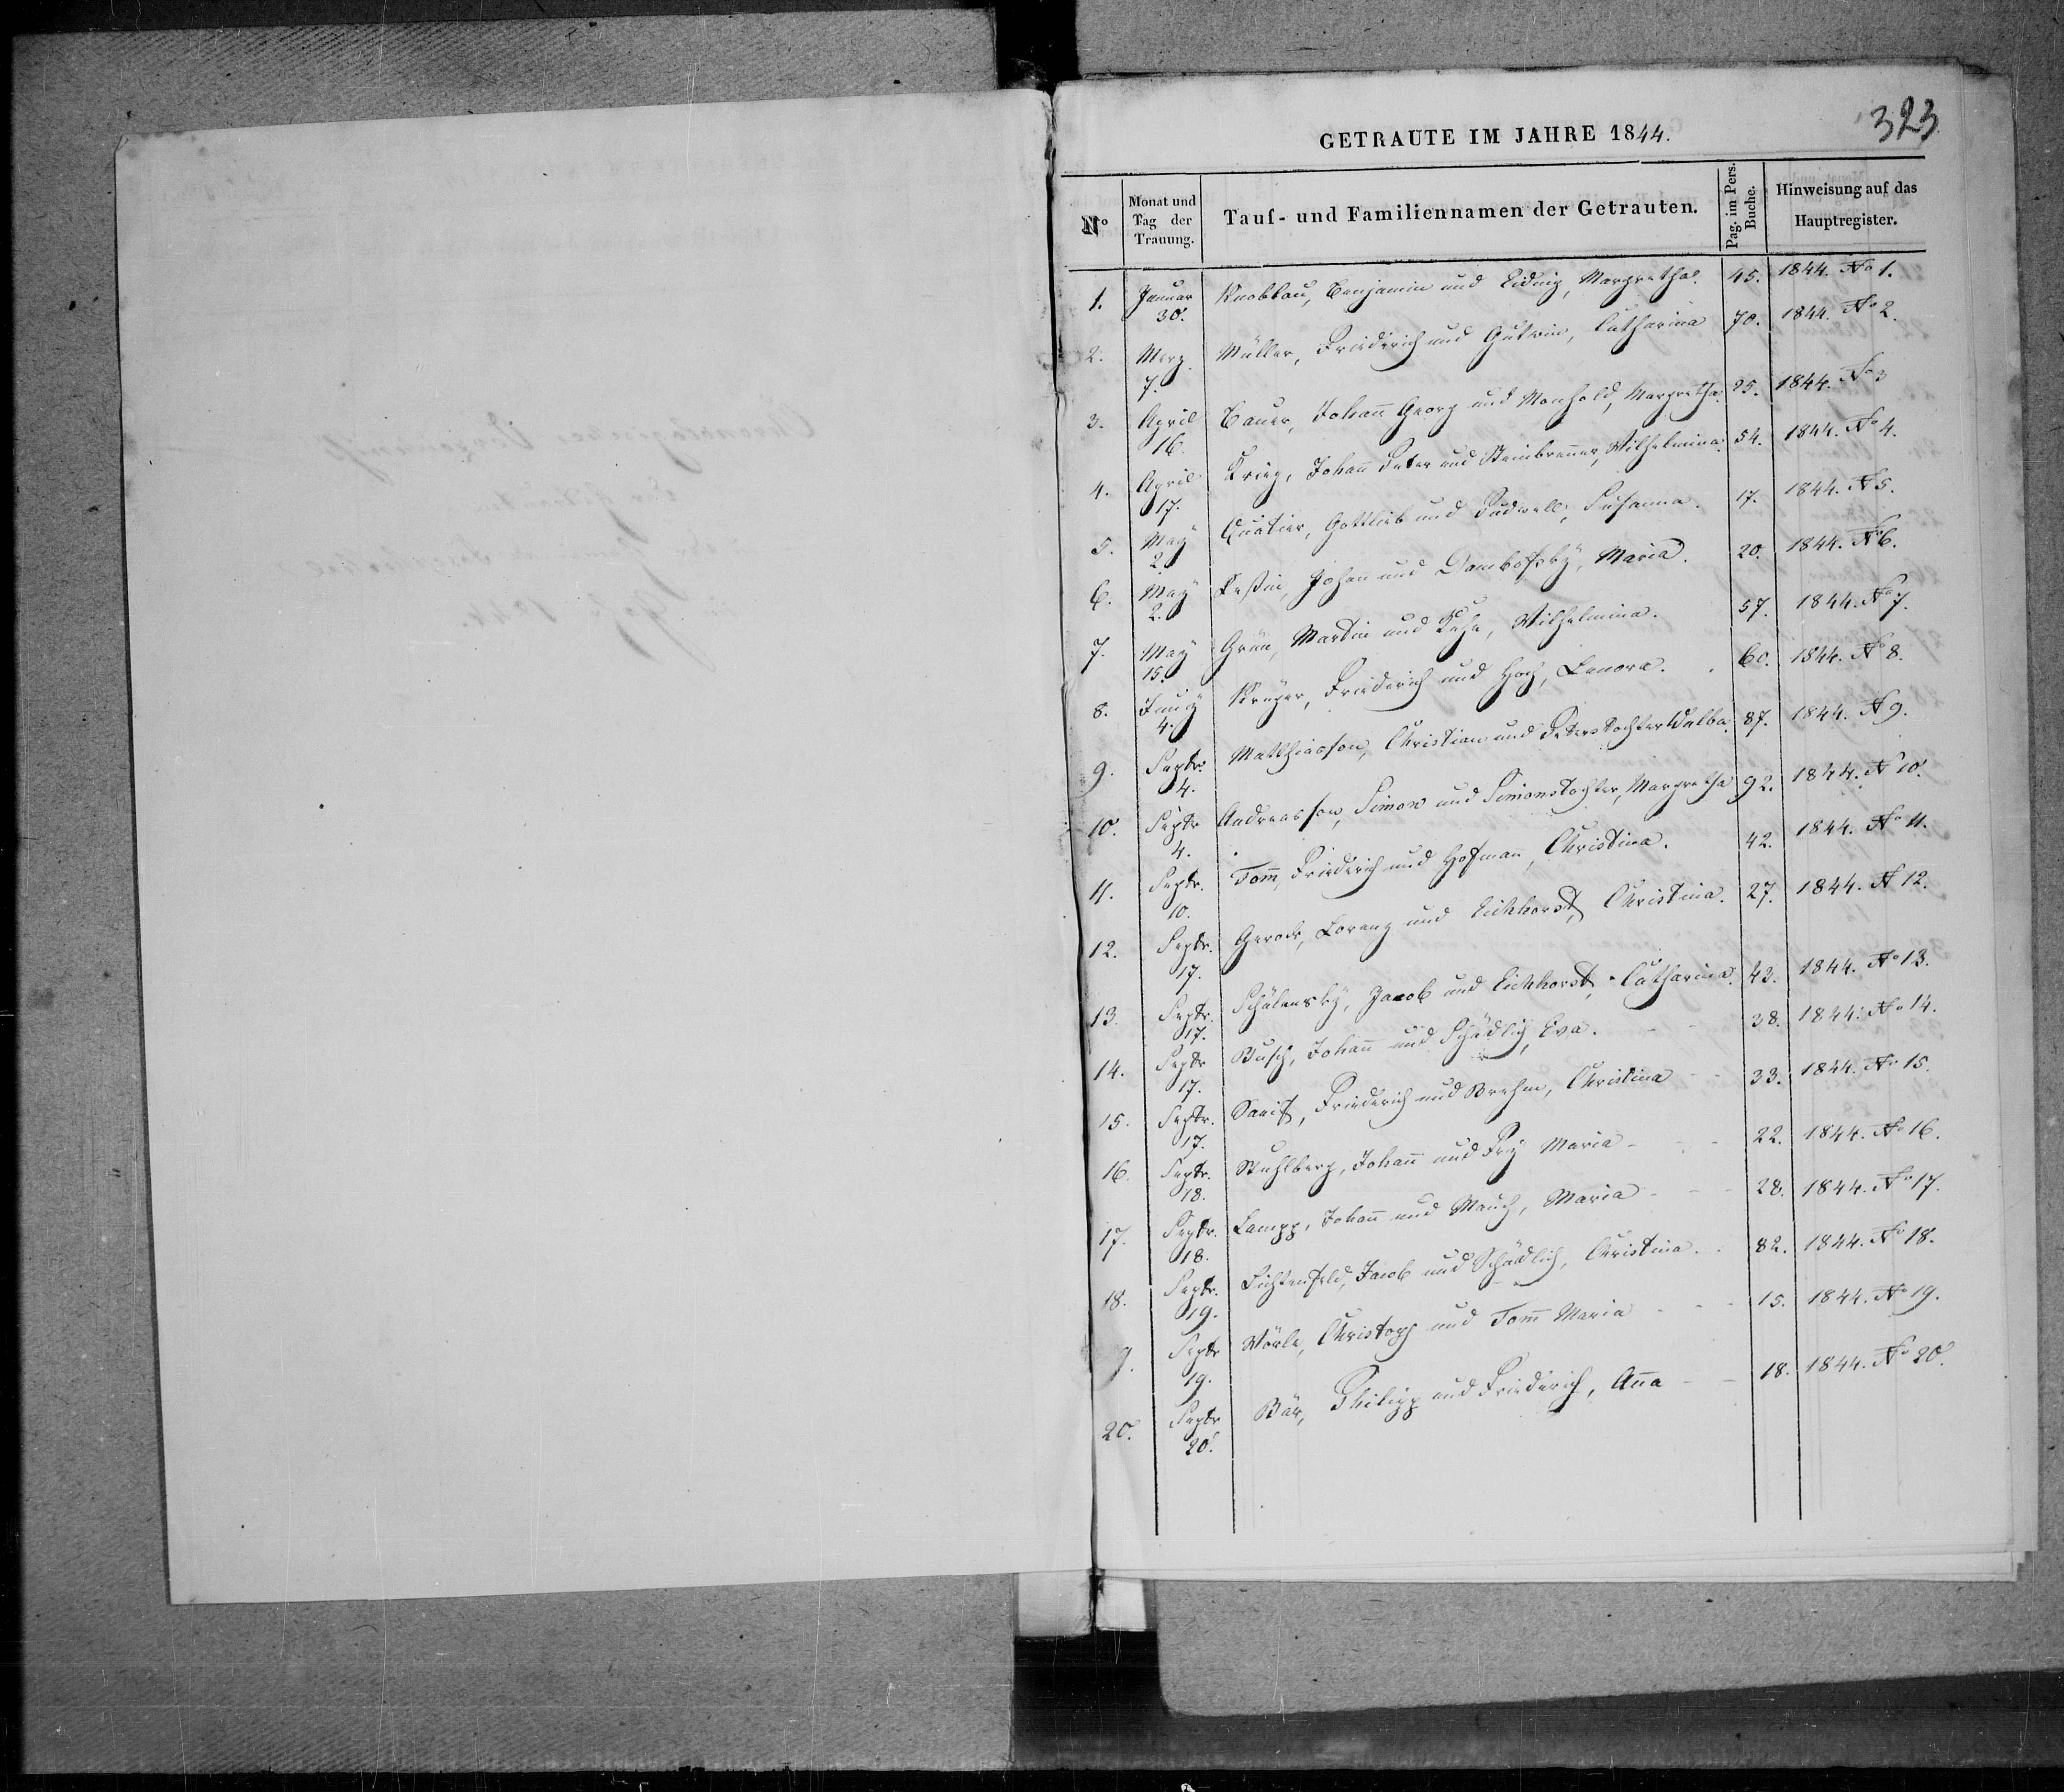 323
GETRAUTE IM JAHRE 1844.
No Monat und Tag der Trauung. Tauf- und Familiennamen der Getrauten. Pag. im Pers. Buche. Hinweisung auf das Hauptregister.
1. Januar 30. Knoblau, Benjamin und Eidnig, Margretha. 45. 1844. No 1.
2. Merz 7. Müller, Friederich und Gutwin, Catharina 70. 1844. No 2.
3. April 16. Bauer, Johann Georg und Monhold, Margretha. 25. 1844. No 3
4. April 17. Krieg, Johann Peter und Steinbrenner, Wilhelmina. 54. 1844. No 4.
5. May 2. Quatier, Gottlieb und Susanna. 17. 1844. No 5.
6. May 2. Johann und Maria. 20. 1844. No 6.
7. May 15. Grün, Martin und Wilhelmina. 57. 1844. No 7.
8. Juny 4. Krüger, Friederich und Hoch, Lenora. 60. 1844. No 8.
9. Septr. 4. Matthiasson, Christian und Peterstochter Walba. 87. 1844. No 9.
10. Septr 4. Andreasson, Simon und Simonstochter, Margretha 92. 1844. No 10.
11. Septr. 10. Tom̄, Friederich und Hofman̄, Christina. 42. 1844. No 11.
12. Septr. 17. Gerock, Lorenz und Eichhorst, Christina. 27. 1844. No 12.
13. Septr. 17. Schülensky, Jacob und Eichhorst, Catharina. 42. 1844. No 13.
14. Septr 17. Busch, Johan̄ und Schädlich, Eva. 38. 1844. No 14.
15. Septr. 17. Friederich und Brehm, Christina 33. 1844. No 15.
16. Septr. 18. Stuhlberg, Johan̄ und Frey Maria 22. 1844. No 16.
17. Septr. 18. Lampp, Johan̄ und Mauch, Maria 28. 1844. No 17.
18. Septr. 19. Lichtenfeld, Jacob und Schädlich, Christina. 82. 1844. No 18.
9. Septr 19. Wörle, Christoph und Tom̄ Maria 15. 1844. No 19.
20. Septr 20. Bär, Philipp und Friederich, An̄a 18. 1844. No 20.